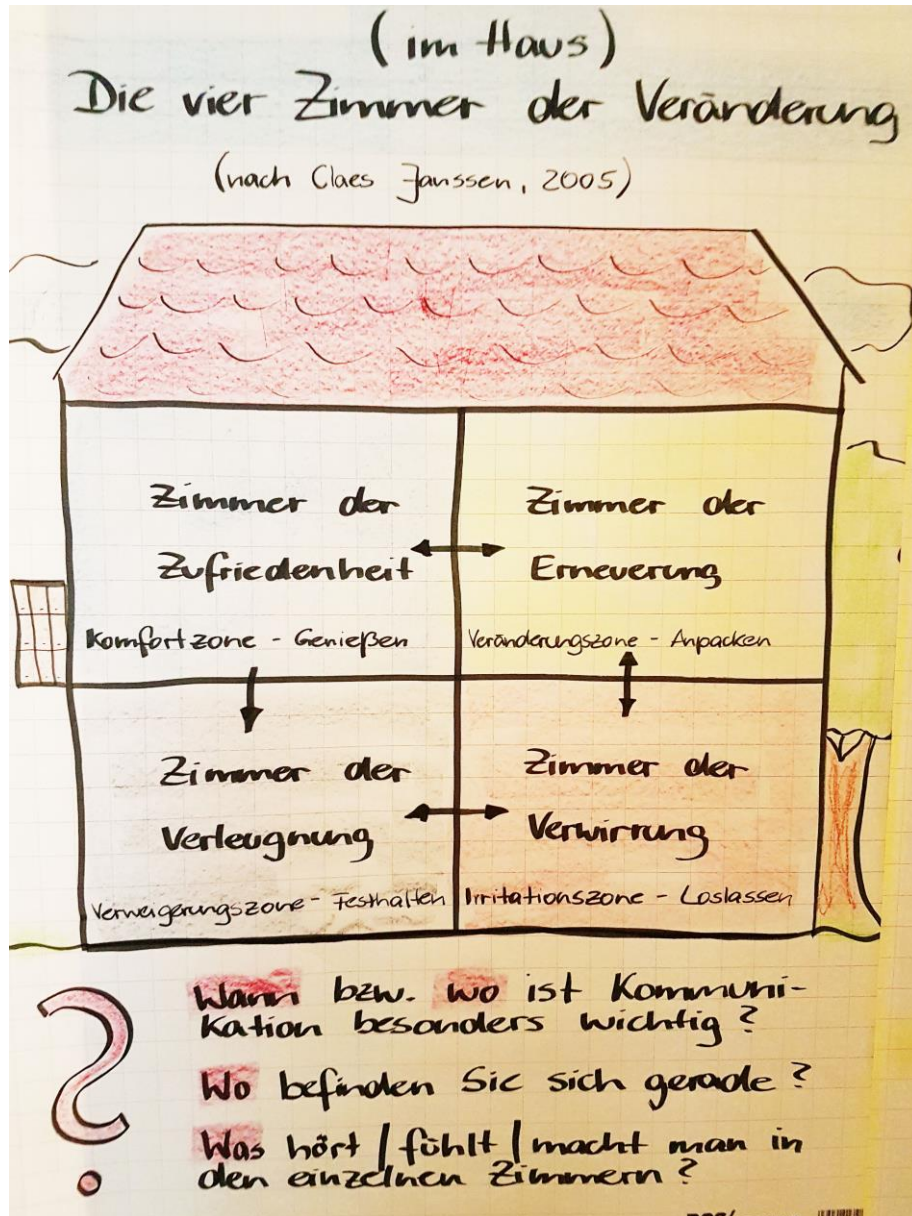 (im Haus)
Die vier Zimmer der Veränderung
(nach Claes Janssen, 2005)
Zimmer der
Zufriedenheit
Komfortzone - Genießen
Zimmer der
Erneuerung
Veränderungszone - Anpacken
Zimmer der
Verleugnung
Verweigerungszone - Festhalten
Zimmer der
Verwirrung
Irritationszone - Loslassen
?
Wann bzw. wo ist Kommuni-
kation besonders wichtig?
Wo befinden Sie sich gerade?
Was hört / fühlt / macht man in
den einzelnen Zimmern?